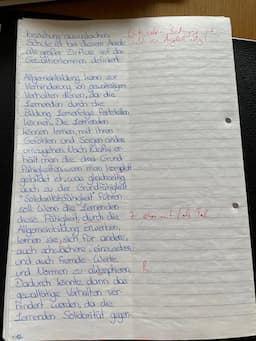 beziehung auszugleichen.
Schule ist bei diesem Ansatz
als großer Einfluss auf das
Gewaltvorkommen definiert.
Allgemeinbildung kann zur
Verhinderung von gewalttätigem
Verhalten dienen, da die
Lernenden durch die
Bildung Lernerfolge feststellen
können. Die Lernenden
können lernen, mit ihren
Gefühlen und Sorgen anders
umzugehen. Nach Klafki er-
hält man die drei Grund-
fähigkeiten wenn man komplett
gebildet ist, was gleichzeitig
auch zu der Grundfähigkeit
"Solidaritätsfähigkeit" führen
soll. Wenn die Lernenden
diese Fähigkeit durch die
Allgemeinbildung erwerben,
lernen sie, sich für andere,
auch schwächere, einzusetzen
und auch fremde Werte
und Normen zu akzeptieren.
Dadurch könnte dann das
gewalttätige Verhalten ver-
hindert werden, da die
Lernenden Solidarität gegen